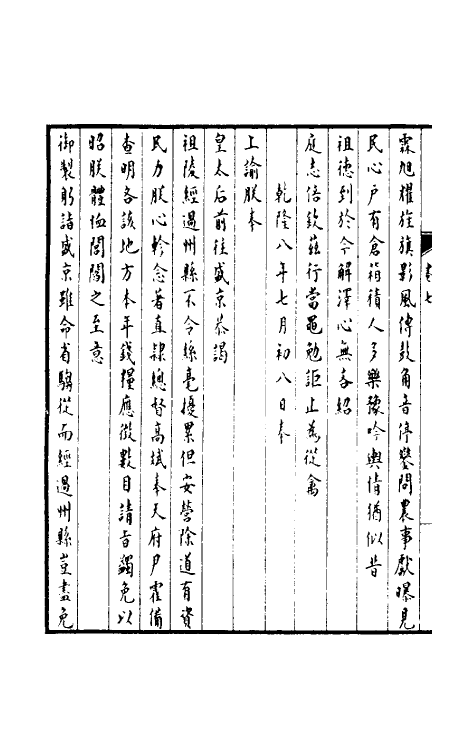 卷七
霖旭耀旌旗影風傳鼓角音停鑾問農事獻曝見
民心户有倉箱積人多樂豫吟輿情猶似昔
祖德到於今解澤心無吝紹
庭志倍欽茲行當黽勉詎止為從禽
乾隆八年七月初八日奉
上諭朕奉
皇太后前往盛京恭謁
祖陵經過州縣不令絲毫擾累但安營除道有資
民力朕心軫念著直隸總督高斌奉天府尹霍備
查明各該地方本年錢糧應徵數目請旨蠲免以
昭朕體恤閭閻之至意
御製躬詣盛京雖命省騶從而經過州縣豈盡免